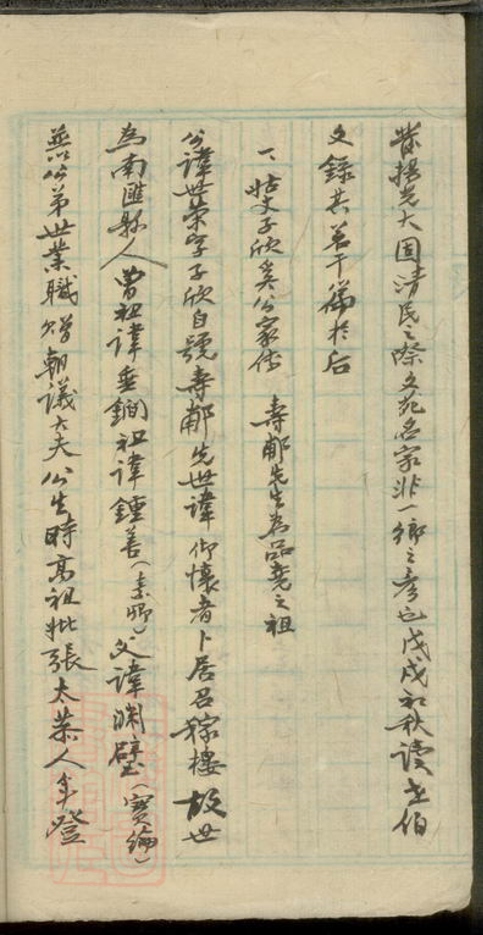 發揚光大固清民之際文苑名家非一鄉之彥也戊戌初秋讀世伯
文錄其若干篇於后
一、姑丈子欣奚公家傳 壽郙先生為品堯之祖
公諱世榮字子欣自號壽郙先世諱御懷者卜居召稼樓故世
為南匯縣人曾祖諱垂鋼祖諱鍾善(素卿)父諱淵璧(寶綸)
無公弟世業職贈朝議大夫公生時高祖妣張太恭人年登